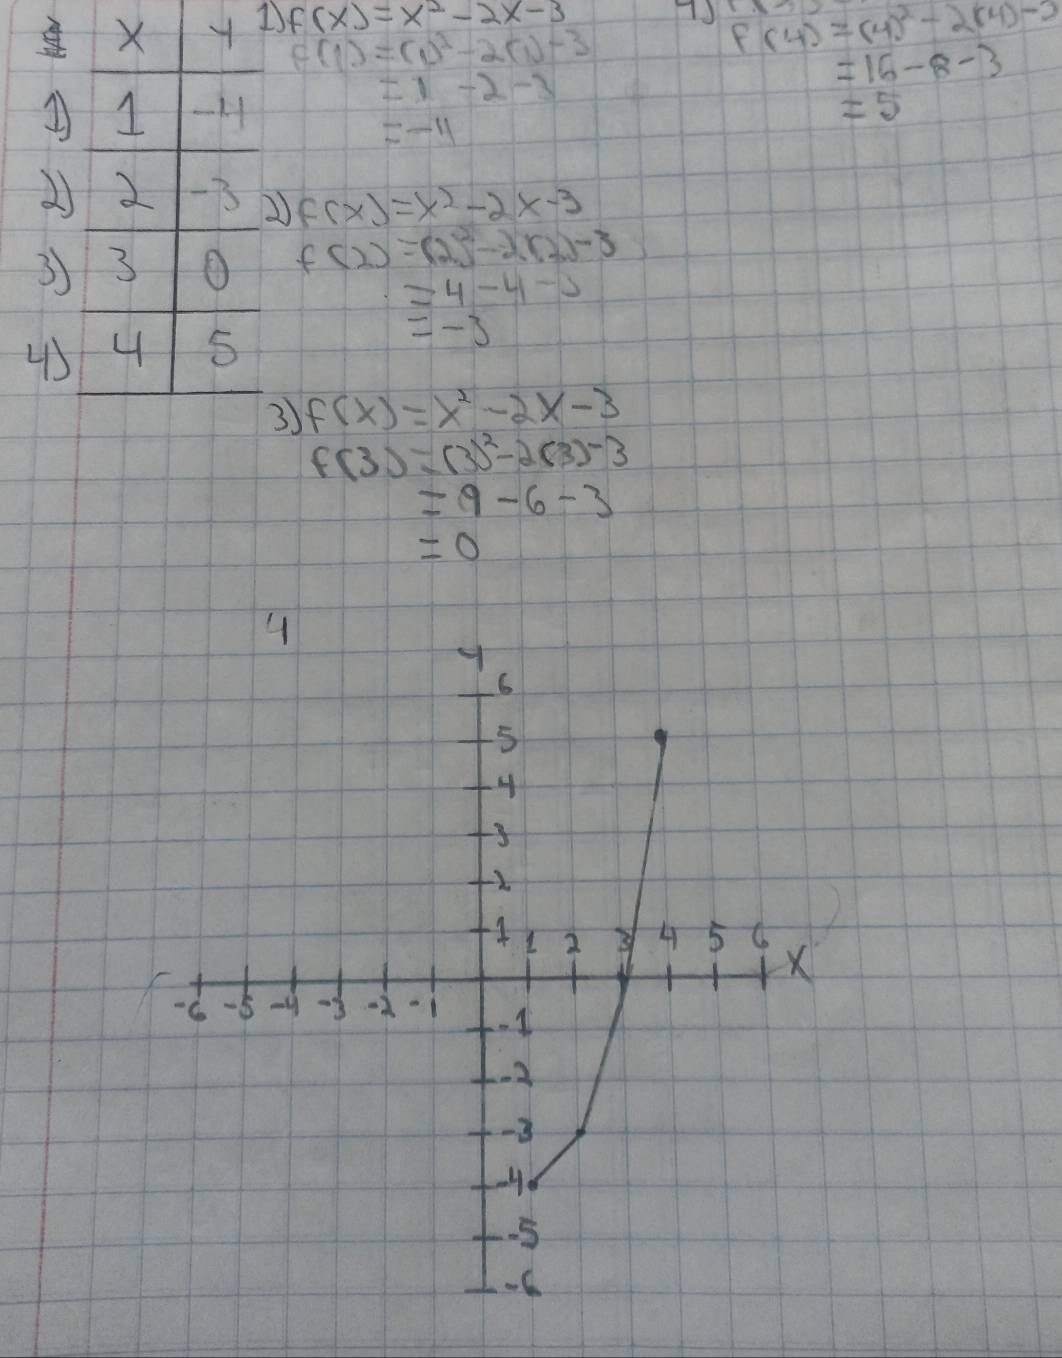 X Y
1) 1 -4
2) 2 -3
3) 3 0
4) 4 5
1) f(x) = x² - 2x - 3
f(1) = (1)² - 2(1) - 3
= 1 - 2 - 3
= -4
2) f(x) = x² - 2x - 3
f(2) = (2)² - 2(2) - 3
= 4 - 4 - 3
= -3
3) f(x) = x² - 2x - 3
f(3) = (3)² - 2(3) - 3
= 9 - 6 - 3
= 0
4)
f(4) = (4)² - 2(4) - 3
= 16 - 8 - 3
= 5
4
Y
6
5
4
3
2
1
1 2 3 4 5 6 X
-6 -5 -4 -3 -2 -1
-1
-2
-3
-4
-5
-6